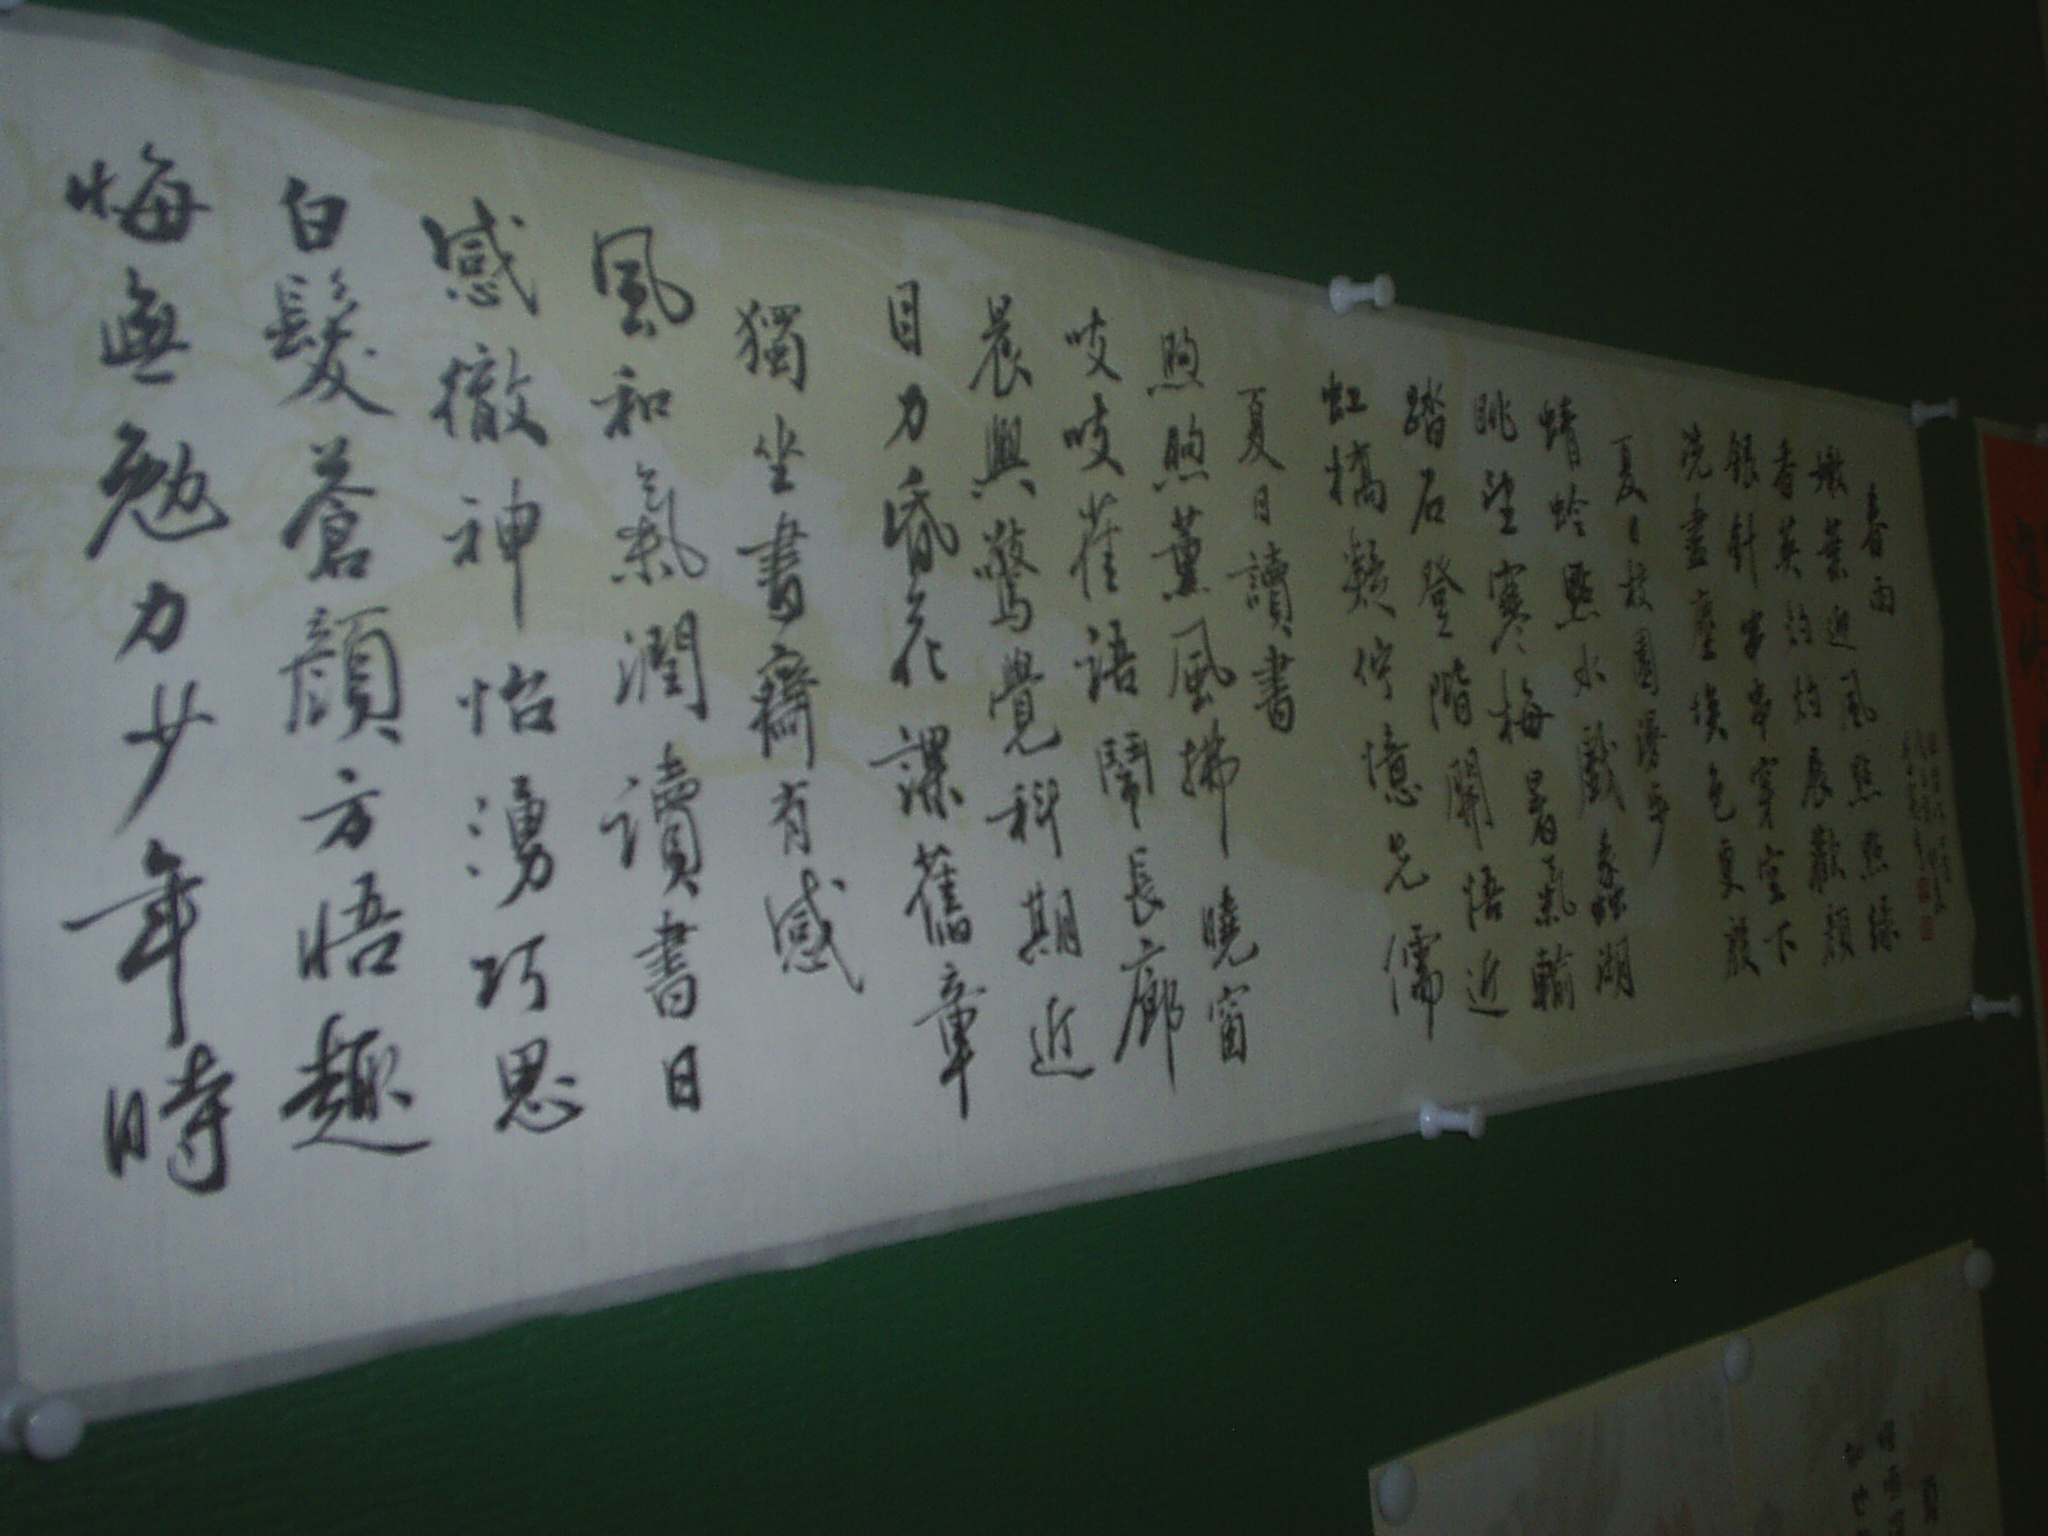 春雨
嫩葉迎風點點綠
香英灼灼展歡顏
銀針串串穿空下
洗盡塵埃色更
夏日校園漫步
蜻蛉點水戲蠡湖
眺望寒梅暑氣輸
踏石登階開悟近
虹橋凝佇憶先儒
夏日讀書
煦煦薰風拂曉窗
吱吱雀語鬧長廊
晨興驚覺科期近
目力昏花課舊章
獨坐書齋有感
風和氣潤讀書日
感徹神怡湧巧思
白髮蒼顏方悟趣
悔無勉力少年時